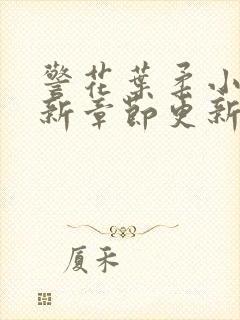 警花葉柔小
新章節更新
厦禾